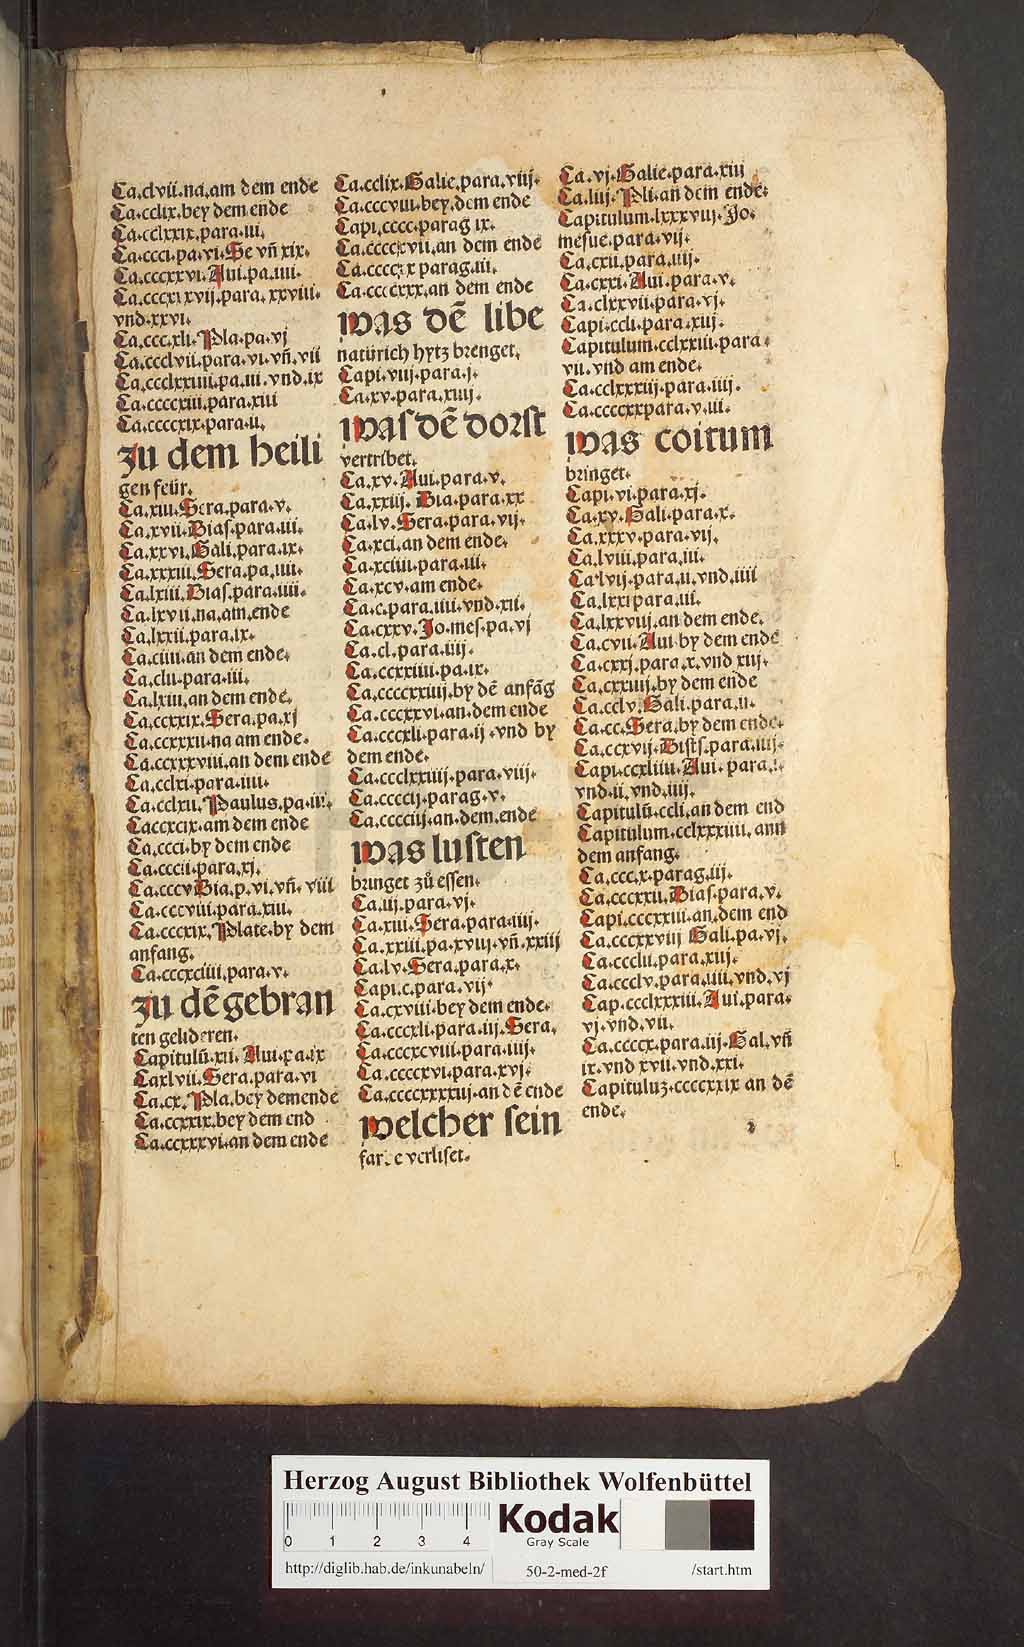 Ca.clvii.na.am dem ende
Ca.cclix.bey dem ende
Ca.cclxxix.para.iii.
Ca.ccci.pa.vi.Se vñ xix.
Ca.cccxxvi.Aui.pa.iiii.
Ca.cccxixvij.para.xxviii.
vnd.xxvi.
Ca.ccc.xli.Pla.pa.vj
Ca.ccclvii.para.vi.vñ.vii
Ca.ccclxxiiii.pa.iii.vnd.ix
Ca.ccccxiii.para.xiii
Ca.ccccxix.para.ii.
zu dem heili
gen feür.
Ca.xiii.Sera.para.v.
Ca.xvii.Bias.para.iii.
Ca.xxvi.Gali.para.ix.
Ca.xxxiii.Sera.pa.iiii.
Ca.lxiii.Bias.para.iiii.
Ca.lxvii.na.am.ende
Ca.lxxii.para.ix.
Ca.ciiii.an dem ende.
Ca.clii.para.iii.
Ca.lxiii.an dem ende.
Ca.ccxxix.Sera.pa.xj
Ca.ccxxxii.na am ende.
Ca.ccxxxviii.an dem ende
Ca.cclxi.para.iiii.
Ca.cclxii.Paulus.pa.iii.
Caccxcix.am dem ende
Ca.ccci.by dem ende
Ca.cccii.para.xj.
Ca.cccv Bia.p.vi.vñ.viii
Ca.cccviii.para.xiii.
Ca.cccxix.Plate.by dem
anfang.
Ca.cccxciiii.para.v.
zu dē gebran
ten gelideren.
Capitulū.xii.Aui.pa.ix
Caxlvii.Sera.para.vi
Ca.cx.Pla.bey demende
Ca.ccxxix.bey dem end
Ca.ccxxxvi.an dem ende
Ca.cclix.Galie.para.viij.
Ca.cccviii.bey.dem ende
Capi.cccc.parag ix.
Ca.ccccxvii.an dem ende
Ca.ccccxx parag.iii.
Ca.ccccxxx.an dem ende
was dē libe
natürich hytz brenget.
Capi.viij.para.j.
Ca.xv.para.xiiij.
was dē dorst
vertribet.
Ca.xv.Aui.para.v.
Ca.xxiij.Bia.para.xx
Ca.lv.Sera.para.vij.
Ca.xci.an dem ende.
Ca.xciiii.para.iii.
Ca.xcv.am ende.
Ca.c.para.iiii.vnd.xii.
Ca.cxxv.Jo.mes.pa.vj
Ca.cl.para.iiij.
Ca.ccxxiiii.pa.ix.
Ca.ccccxxiiij.by dē anfāg
Ca.cccxxvi.an.dem ende
Ca.cccxli.para.ij.vnd by
dem ende.
Ca.ccclxxiiij.para.viij.
Ca.ccccij.parag.v.
Ca.cccciij.an.dem.ende
was lusten
bringet zů essen.
Ca.iij.para.vj.
Ca.xiii.Sera.para.iiij.
Ca.xxiii.pa.xviij.vñ.xxiij
Ca.lv.Sera.para.x.
Capi.c.para.vij.
Ca.cxviii.bey dem ende.
Ca.cccxli.para.iij.Sera.
Ca.cccxcviii.para.iiij.
Ca.ccccxvi.para.xvj.
Ca.ccccxxxiij.an dē ende
welcher sein
farbe verliset.
Ca.vj.Galie.para.xiij
Ca.liij.Pli.an dem ende.
Capitulum.lxxxviij.Jo.
mesue.para.vij.
Ca.cxii.para.iiij.
Ca.cxxi.Aui.para.v.
Ca.clxxvii.para.vj.
Capi.ccli.para.xij.
Capitulum.cclxxiii.para.
vii.vnd am ende.
Ca.cclxxxiij.para.iiij.
Ca.ccccxxpara.v.iii.
was coitum
bringet.
Capi.vi.para.xj.
Ca.xv.Gali.para.x.
Ca.xxxv.para.vij.
Ca.lviii.para.iii.
Ca.lvij.para.ii.vnd.iiii
Ca.lxxi para.iii.
Ca.lxxviij.an dem ende.
Ca.cvii.Aui by dem ende
Ca.cxxj.para.x.vnd xiij.
Ca.cxxiiij.by dem ende
Ca.cclv.Gali.para.ii.
Ca.cc.Sera.by dem ende.
Ca.ccxvij.Bists.para.iiij.
Capi.ccxliiii.Aui.para.i.
vnd.ii.vnd.iiij.
Capitulū.ccli.an dem end
Capitulum.cclxxxiiii.ann
dem anfang.
Ca.ccc.x.parag.iij.
Ca.cccxxii.Bias.para.v.
Capi.cccxxiii.an.dem end
Ca.cccxxviij Gali.pa.vj.
Ca.ccclii.para.xij.
Ca.ccclv.para.iiii.vnd.vj
Cap.ccclxxxiii.Aui.para.
vj.vnd.vii.
Ca.ccccx.para.iij.Gal.vñ
ix.vnd xvii.vnd.xxi.
Capituluz.ccccxxix an dē
ende.
Herzog August Bibliothek Wolfenbüttel
0 1 2 3 4
Kodak
Gray Scale
http://diglib.hab.de/inkunabeln/ 50-2-med-2f /start.htm